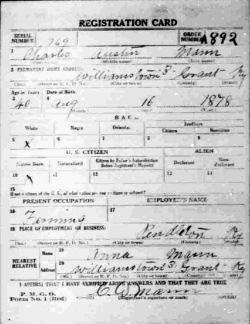 REGISTRATION CARD
SERIAL NUMBER 769 ORDER NUMBER A892
1 Charles Austin Mann
2 PERMANENT HOME ADDRESS:
Williamstown 3 Grant Ky
Age in Years Date of Birth
40 Aug 16 1878
RACE
White Negro Oriental Indian
U. S. CITIZEN ALIEN
Native Born Naturalized Citizen by Father's Naturalization Before Registrant's Majority Declarant Non-declarant
If not a citizen of the U. S., of what nation are you a citizen or subject?
PRESENT OCCUPATION EMPLOYER'S NAME
Farming
18 PLACE OF EMPLOYMENT OR BUSINESS:
Pendleton Ky
NEAREST RELATIVE
Name Anna Mann
Address Williamstown 3 Grant Ky
I AFFIRM THAT I HAVE VERIFIED ABOVE ANSWERS AND THAT THEY ARE TRUE
P. M. G. O.
Form No. 1 (Red) C A Mann
(Registrant's signature or mark)